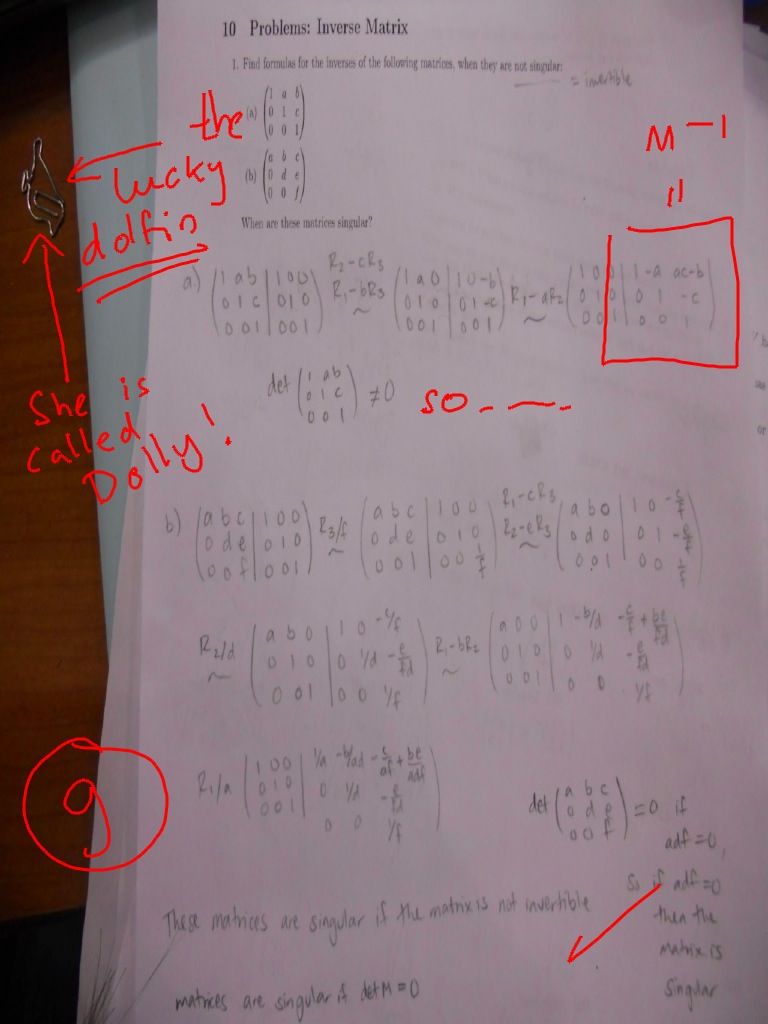 10 Problems: Inverse Matrix
1. Find formulas for the inverses of the following matrices, when they are not singular:
= invertible
(a) (1 a b
0 1 c
0 0 1)
(b) (a b c
0 d e
0 0 f)
When are these matrices singular?
the
lucky
dolfin
She is
called
Dolly!
M⁻¹
=
a.) (1 a b | 1 0 0
0 1 c | 0 1 0
0 0 1 | 0 0 1)
R₂-cR₃
R₁-bR₃
~
(1 a 0 | 1 0 -b
0 1 0 | 0 1 -c
0 0 1 | 0 0 1)
R₁-aR₂
~
(1 0 0 | 1 -a ac-b
0 1 0 | 0 1 -c
0 0 1 | 0 0 1)
det (1 a b
0 1 c
0 0 1) ≠0
so - - - -
b) (a b c | 1 0 0
0 d e | 0 1 0
0 0 f | 0 0 1)
R₃/f
~
(a b c | 1 0 0
0 d e | 0 1 0
0 0 1 | 0 0 1/f)
R₁-cR₃
R₂-eR₃
~
(a b 0 | 1 0 -c/f
0 d 0 | 0 1 -e/f
0 0 1 | 0 0 1/f)
R₂/d
~
(a b 0 | 1 0 -c/f
0 1 0 | 0 1/d -e/fd
0 0 1 | 0 0 1/f)
R₁-bR₂
~
(a 0 0 | 1 -b/d -c/f + be/fd
0 1 0 | 0 1/d -e/fd
0 0 1 | 0 0 1/f)
R₁/a
(1 0 0 | 1/a -b/ad -c/af + be/adf
0 1 0 | 0 1/d -e/fd
0 0 1 | 0 0 1/f)
9
det (a b c
0 d e
0 0 f) =0 if
adf=0,
So if adf=0
then the
matrix is
singular
These matrices are singular if the matrix is not invertible
matrices are singular if det M = 0